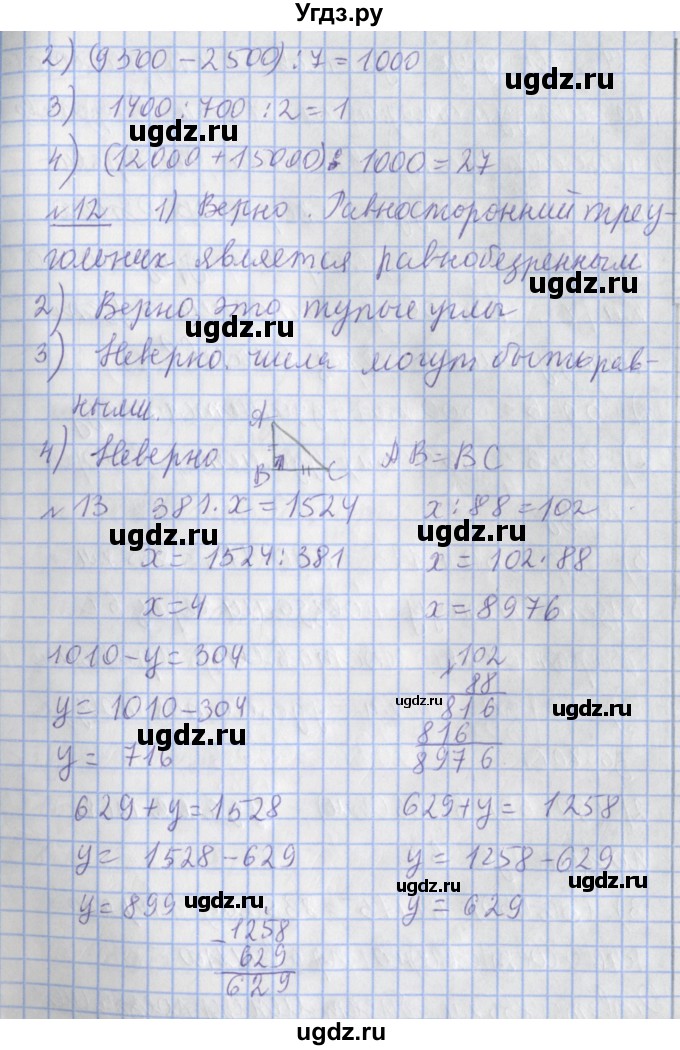 Угдз.ру
2) (9500 - 2500) : 7 = 1000
3) 1400 : 700 : 2 = 1
ugdz.ru ugdz.ru
4) (12000 + 15000) : 1000 = 27
№12 1) Верно. Равносторонний треу-
ugdz.ru
гольник является равнобедренным
ugdz.ru
2) Верно, это тупые углы
ugdz.ru
3) Неверно. числа могут быть рав-
ugdz.ru
ными.
4) Неверно A B C AB = BC
№13 381 · x = 1524 x : 88 = 102
ugdz.ru ugdz.ru
x = 1524 : 381 x = 102 · 88
x = 4 x = 8976
1010 - y = 304 102
88
y = 1010 - 304 816
ugdz.ru ugdz.ru
ugdz.ru 816
y = 716 8976
629 + y = 1528 629 + y = 1258
y = 1528 - 629 y = 1258 - 629
ugdz.ru
y = 899 ugdz.ru y = 629
- 1258
629
629
ugdz.ru